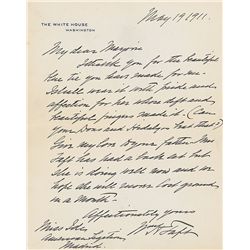 THE WHITE HOUSE
WASHINGTON
May 19 1911.
My dear Marjorie
I thank you for the beautiful
tie you have made for me.
I shall wear it with pride and
affection for her whose deft and
beautiful fingers made it. (Can
your Dons and Hidalgos beat that?)
Give my love to your father. Mrs
Taft has had a bad attack but
she is doing well now and
we hope she will recover lost ground
in a month.
Affectionately yours
Wm H Taft
Miss Ide
American Legation
Madrid